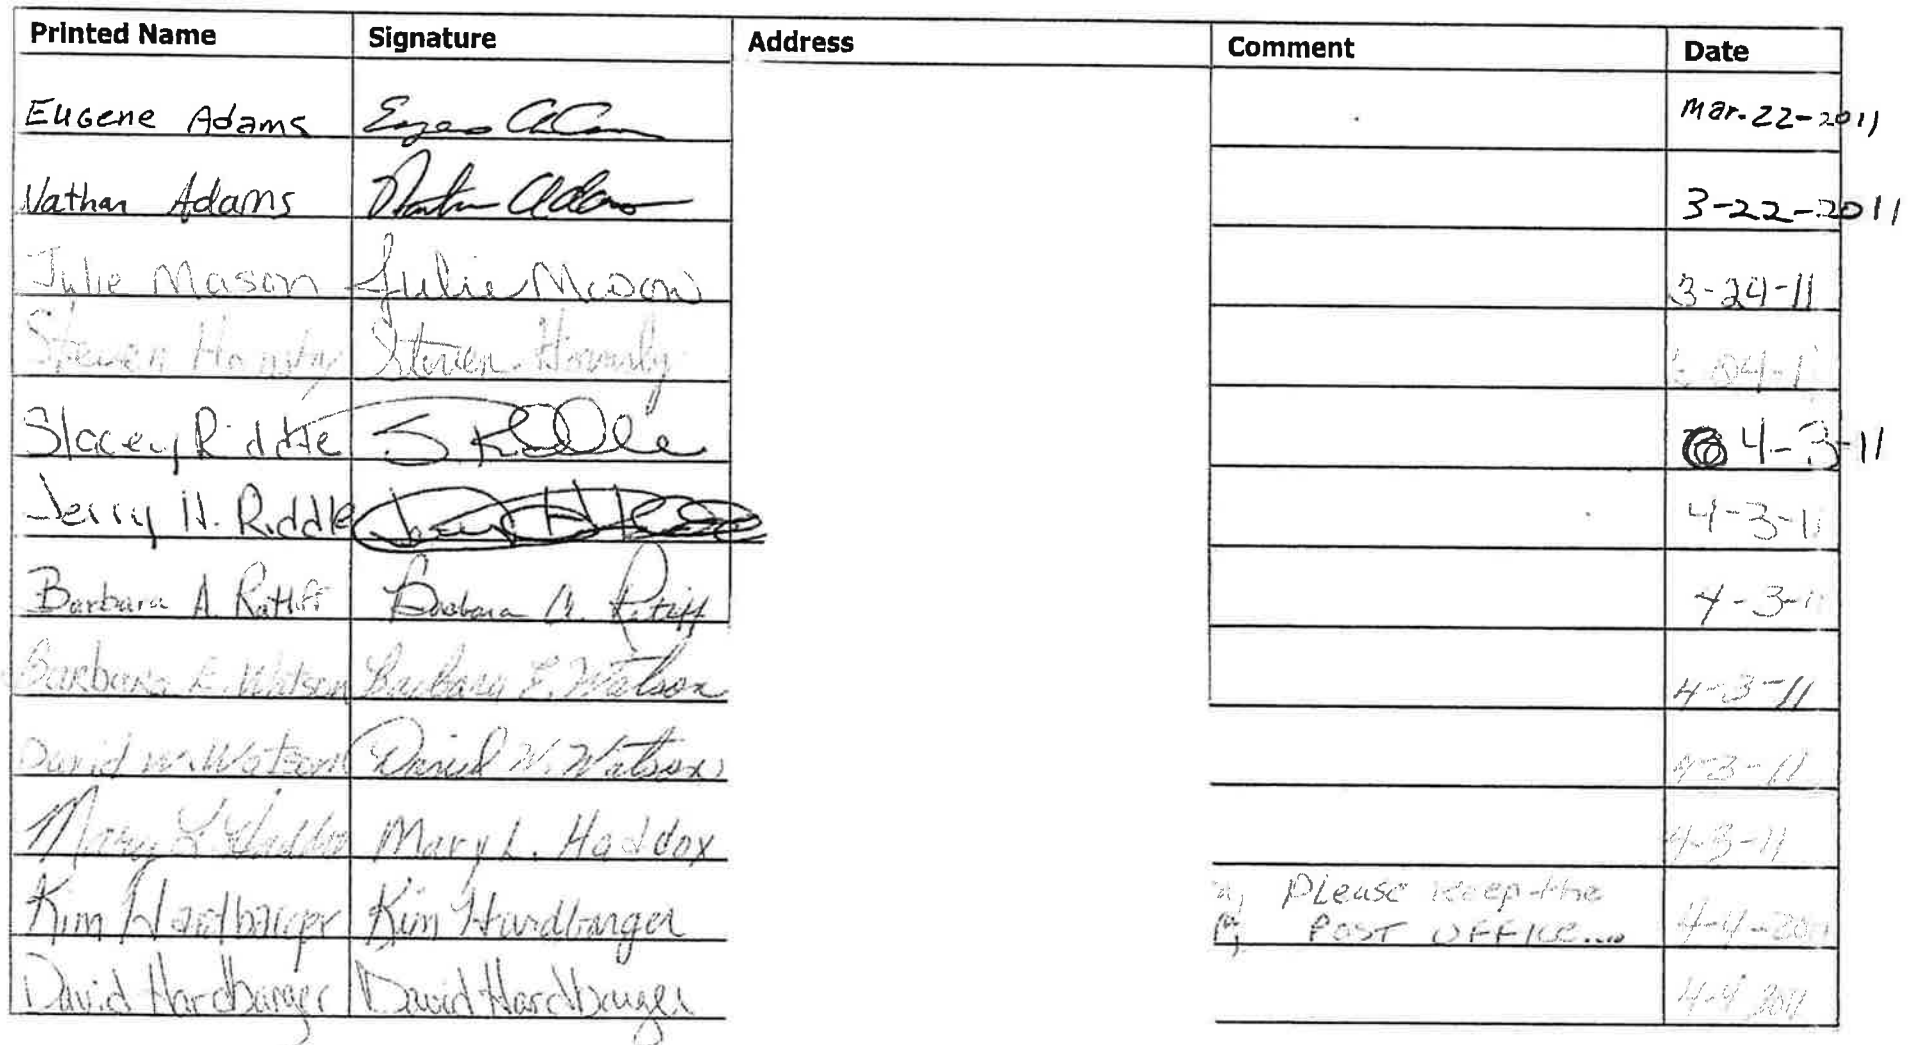 Printed Name Signature Address Comment Date
Eugene Adams Eugene Adams Mar-22-2011
Nathan Adams Nathan Adams 3-22-2011
Julie Mason Julie Mason 3-24-11
Steven Steven
Stacey Riddle S Riddle 4-3-11
Jerry H. Riddle Jerry H Riddle 4-3-11
Barbara A. Ratliff Barbara A. Ratliff 4-3-11
Barbara E. Watson Barbara E. Watson 4-3-11
David W. Watson David W. Watson 4-3-11
Mary L. Haddox Mary L. Haddox 4-3-11
Kim Hardbarger Kim Hardbarger Please keep the
Post Office... 4-4-2011
David Hardbarger David Hardbarger 4-4 2011